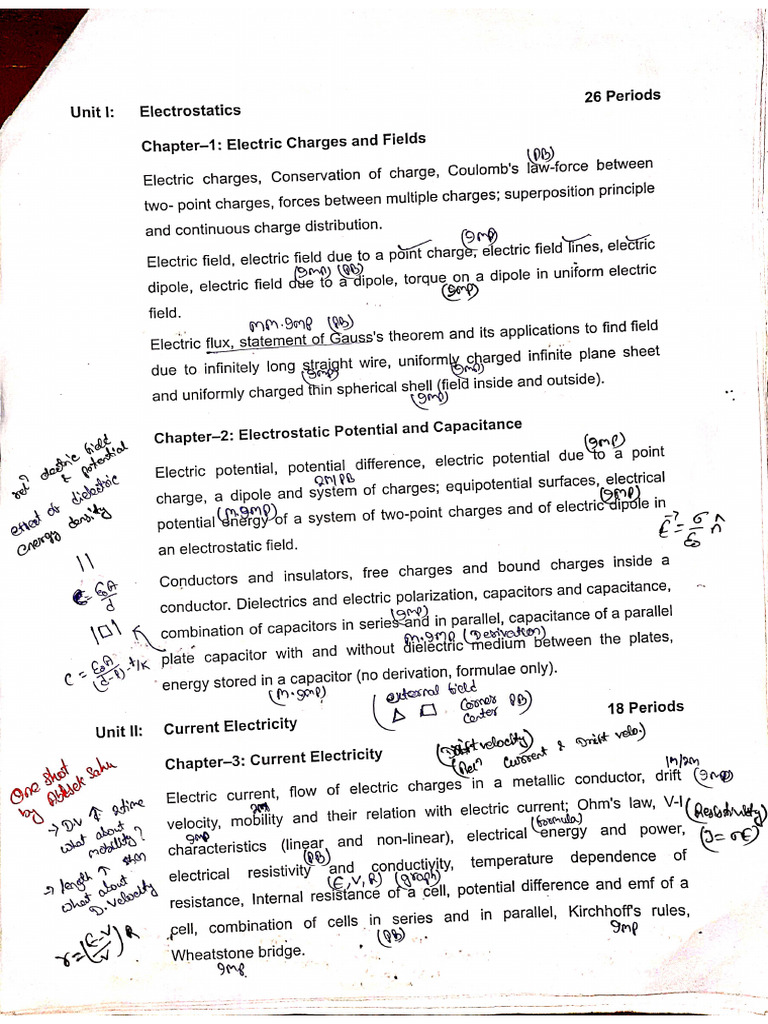 26 Periods
Unit I: Electrostatics
Chapter–1: Electric Charges and Fields
(PB)
Electric charges, Conservation of charge, Coulomb's law-force between
two- point charges, forces between multiple charges; superposition principle
and continuous charge distribution.
(Imp)
Electric field, electric field due to a point charge, electric field lines, electric
(Imp) (PB)
dipole, electric field due to a dipole, torque on a dipole in uniform electric
(Imp)
field.
MM.Imp (PB)
Electric flux, statement of Gauss's theorem and its applications to find field
due to infinitely long straight wire, uniformly charged infinite plane sheet
(Imp) (Imp)
and uniformly charged thin spherical shell (field inside and outside).
(Imp)
Chapter–2: Electrostatic Potential and Capacitance
relⁿ electric field
& potential
effect of dielectric
energy density
(Imp)
Electric potential, potential difference, electric potential due to a point
2M/PB
charge, a dipole and system of charges; equipotential surfaces, electrical
(M.Imp) (Imp)
potential energy of a system of two-point charges and of electric dipole in
an electrostatic field.
E⃗ = σ/ε₀ n̂
C = ε₀A/d
C = ε₀A/(d-t)+t/K
Conductors and insulators, free charges and bound charges inside a
conductor. Dielectrics and electric polarization, capacitors and capacitance,
(Imp)
combination of capacitors in series and in parallel, capacitance of a parallel
M.Imp (Derivation)
plate capacitor with and without dielectric medium between the plates,
energy stored in a capacitor (no derivation, formulae only).
(M.Imp)
(external field
△ □ Corner PB)
Center
18 Periods
Unit II: Current Electricity
(Drift velocity)
(Relⁿ Current & Drift velo.)
Chapter–3: Current Electricity
One shot
by Abhishek Sahu
1M/2M
Electric current, flow of electric charges in a metallic conductor, drift (Imp)
2M
velocity, mobility and their relation with electric current; Ohm's law, V-I
(Resistivity)
(J=σE)
Imp (formula)
characteristics (linear and non-linear), electrical energy and power,
(PB)
electrical resistivity and conductivity, temperature dependence of
(E,V,R) (graph)
resistance, Internal resistance of a cell, potential difference and emf of a
cell, combination of cells in series and in parallel, Kirchhoff's rules,
(PB) Imp
Wheatstone bridge.
Imp
→ DV ↑ 2time
what about
mobility?
→ length ↑
what about
D. Velocity
r=(E-V/V)R